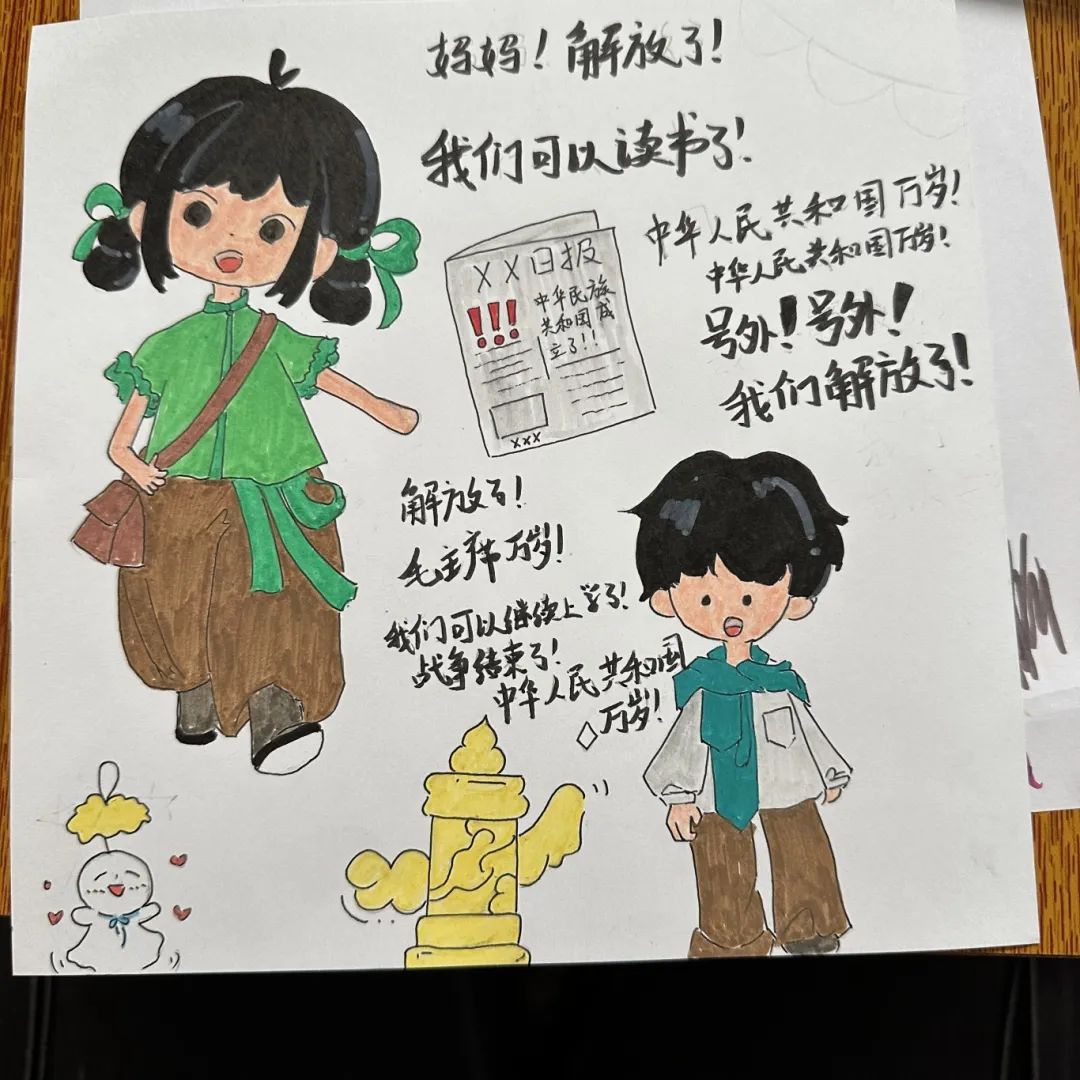 妈妈！解放了！
我们可以读书了！
中华人民共和国万岁！
中华人民共和国万岁！
号外！号外！
我们解放了！
XX日报
!!!
中华民族
共和国成
立了!!
xxx
解放了！
毛主席万岁！
我们可以继续上学了！
战争结束了！
中华人民共和国
万岁！